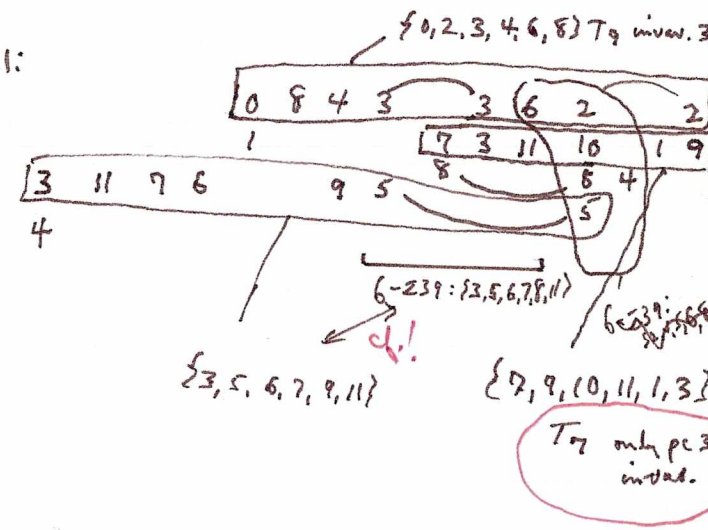 {0,2,3,4,6,8} T9 invar. 3
1:
0 8 4 3 3 6 2 2
1 7 3 11 10 1 9
8 8 4
3 11 7 6 9 5 5
4
6-Z39: {3,5,6,7,8,11}
6-Z39:
cf.!
{3,5,6,7,9,11}
{7,9,10,11,1,3}
only pc 3
invar.